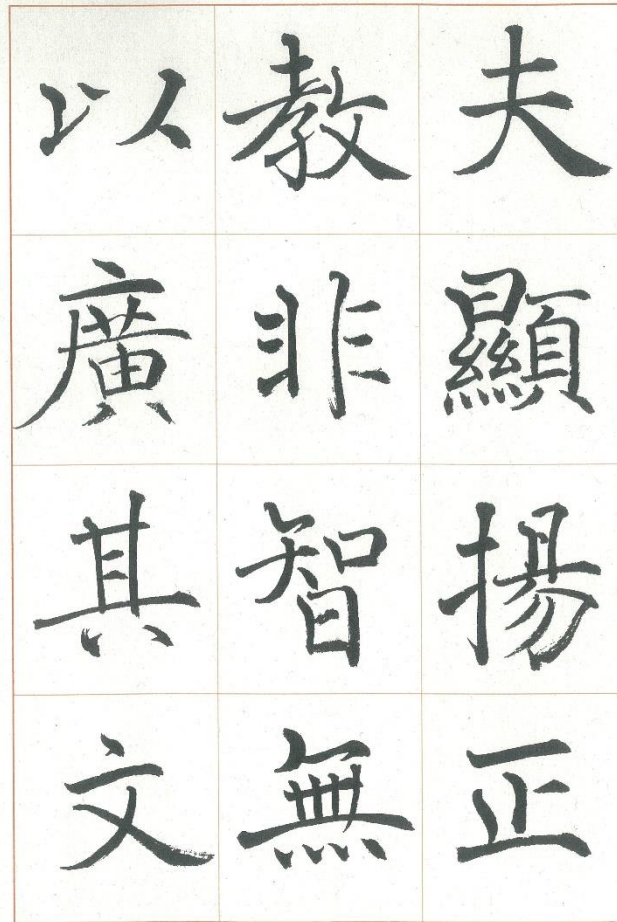 夫顯揚正
教非智無
以廣其文